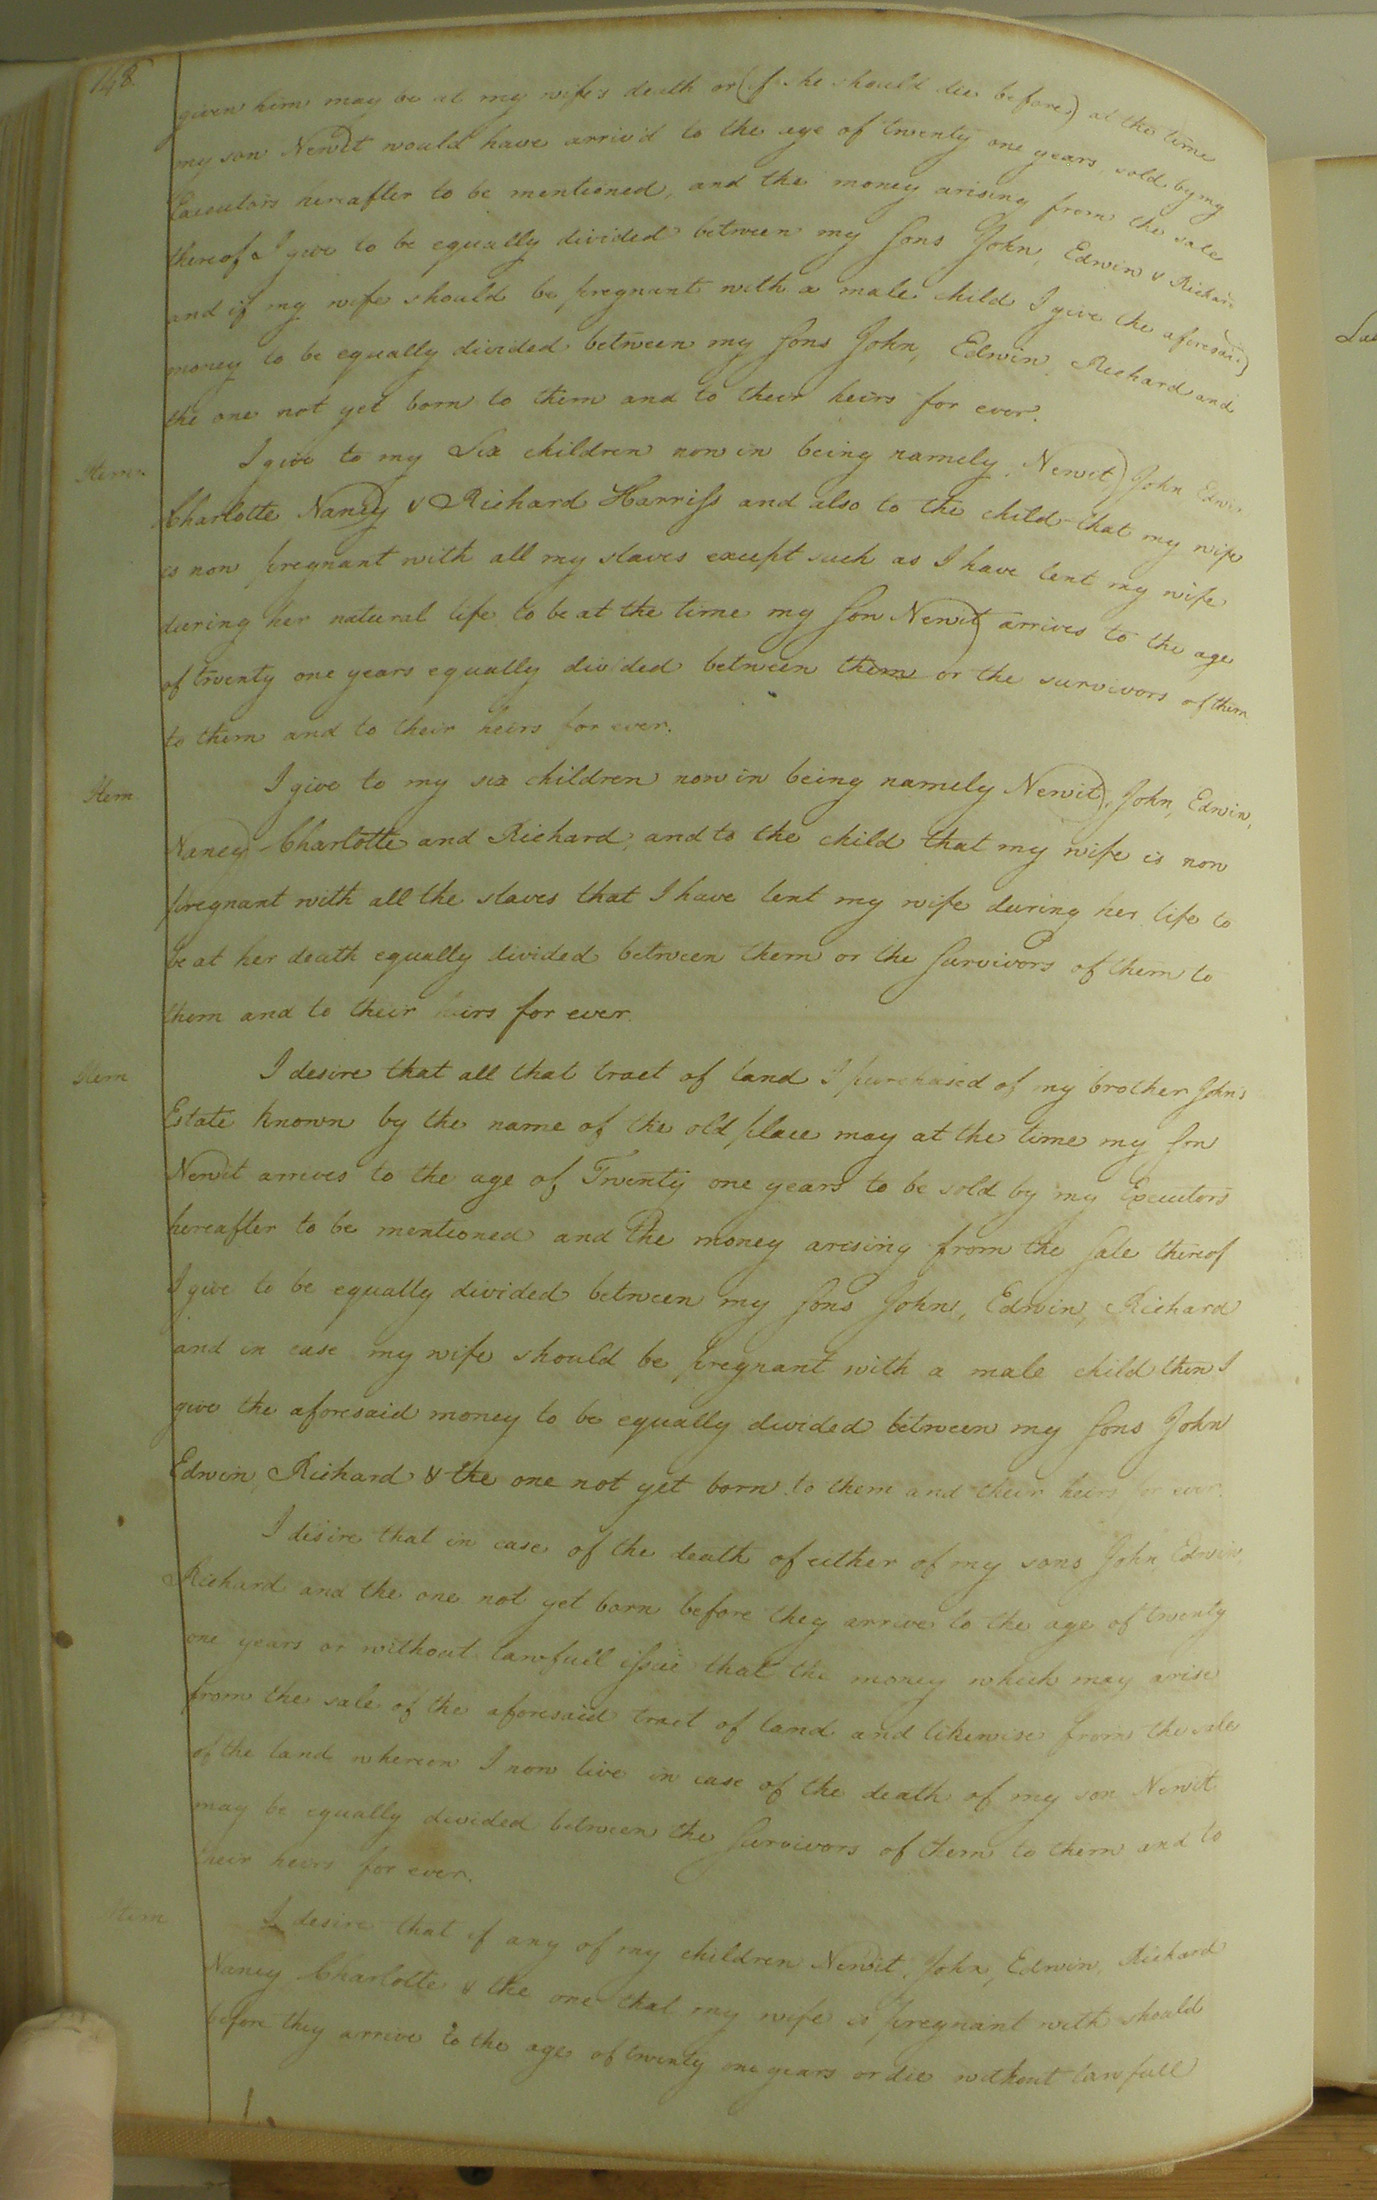 148
given him may be at my wife's death or (if she should die before) at the time
my son Newit would have arriv'd to the age of twenty one years, sold by my
Executors hereafter to be mentioned, and the money arising from the sale
thereof I give to be equally divided between my sons John, Edwin & Richard
and if my wife should be pregnant with a male child I give the aforesaid
money to be equally divided between my sons John, Edwin, Richard and
the one not yet born to them and to their heirs for ever.
Item I give to my Six children now in being namely, Newit, John, Edwin
Charlotte, Nancy & Richard Harriss and also to the child that my wife
is now pregnant with all my slaves except such as I have lent my wife
during her natural life, to be at the time my son Newit arrives to the age
of twenty one years equally divided between them or the survivors of them
to them and to their heirs for ever.
Item I give to my six children now in being namely Newit, John, Edwin,
Nancy, Charlotte and Richard, and to the child that my wife is now
pregnant with all the slaves that I have lent my wife during her life to
be at her death equally divided between them or the survivors of them to
them and to their heirs for ever.
Item I desire that all that tract of land I purchased of my brother John's
Estate known by the name of the old place may at the time my son
Newit arrives to the age of Twenty one years to be sold by my Executors
hereafter to be mentioned and the money arising from the sale thereof
I give to be equally divided between my sons John, Edwin, Richard
and in case my wife should be pregnant with a male child then I
give the aforesaid money to be equally divided between my sons John
Edwin, Richard & the one not yet born to them and their heirs for ever.
I desire that in case of the death of either of my sons John, Edwin,
Richard and the one not yet born before they arrive to the age of twenty
one years or without lawfull issue that the money which may arise
from the sale of the aforesaid tract of land and likewise from the sale
of the land whereon I now live in case of the death of my son Newit
may be equally divided between the survivors of them to them and to
their heirs for ever.
Item I desire that if any of my children Newit, John, Edwin, Richard
Nancy, Charlotte & the one that my wife is pregnant with should
before they arrive to the age of twenty one years or die without lawfull